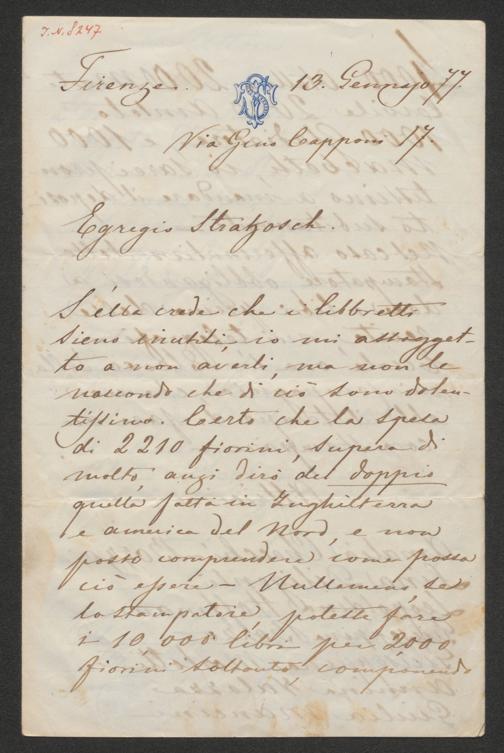 I.N. 8247
Firenze. 13. Gennajo 77.
Via Gino Capponi 17.
Egregio Strakosch.
S'ella crede che i libbretti
sieno inutili, io mi assogget-
to a non averli, ma non le
nascondo che di ciò sono dolen-
tissimo. Certo che la spesa
di 2210 fiorini, supera di
molto, anzi dirò del doppio
quella fatta in Inghilterra
e america del Nord, e non
posso comprendere come possa
ciò essere – Nullameno, se
lo stampatore, potesse fare
i 10.000 libri per 2,000
fiorini soltanto, componendo